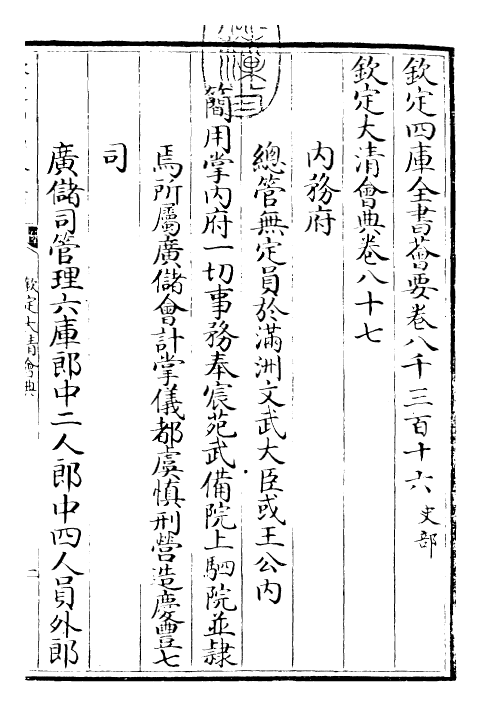 欽定四庫全書薈要卷八千三百十六 史部
欽定大清會典卷八十七
內務府
總管無定員於滿洲文武大臣或王公內
簡用掌內府一切事務奉宸苑武備院上駟院並隸
焉所屬廣儲會計掌儀都虞慎刑營造慶豐七
司
廣儲司管理六庫郎中二人郎中四人員外郎
欽定大清會典